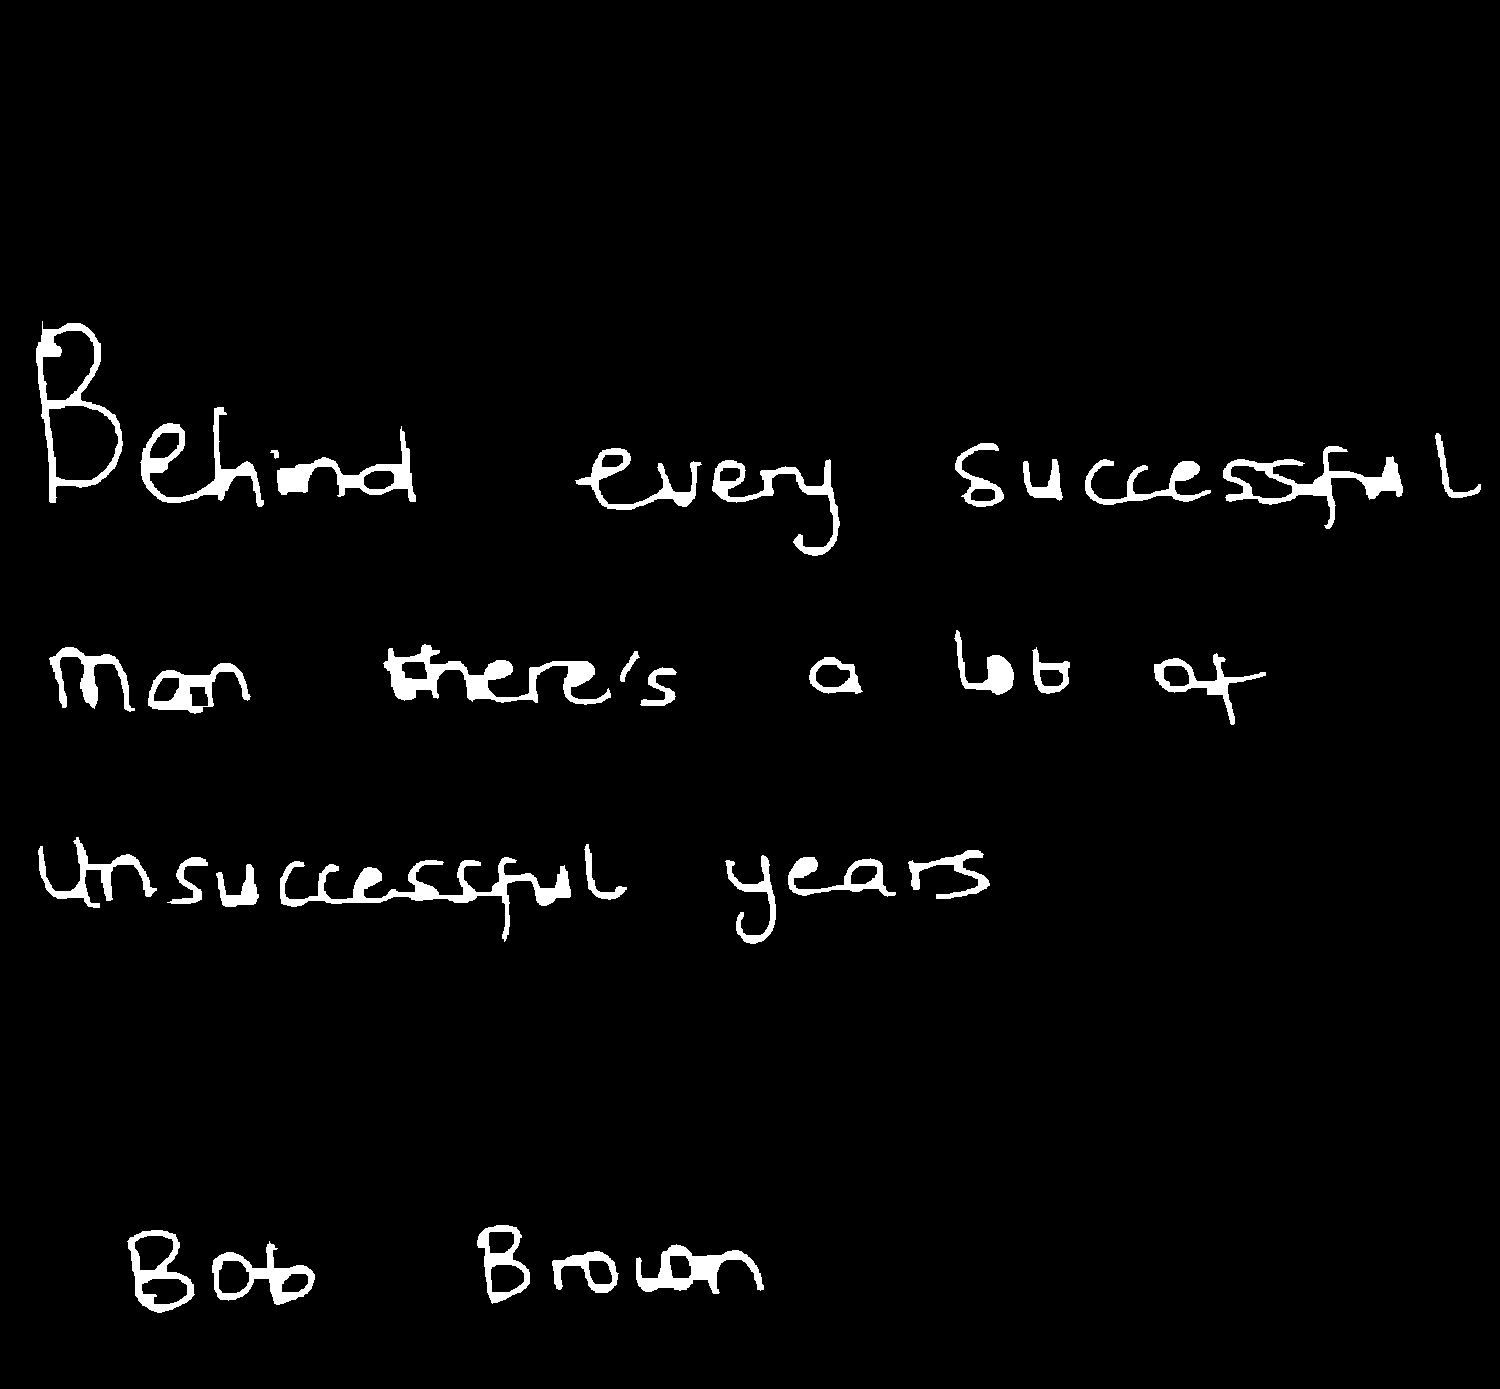 Behind every successful
man there's a lot of
unsuccessful years
Bob Brown